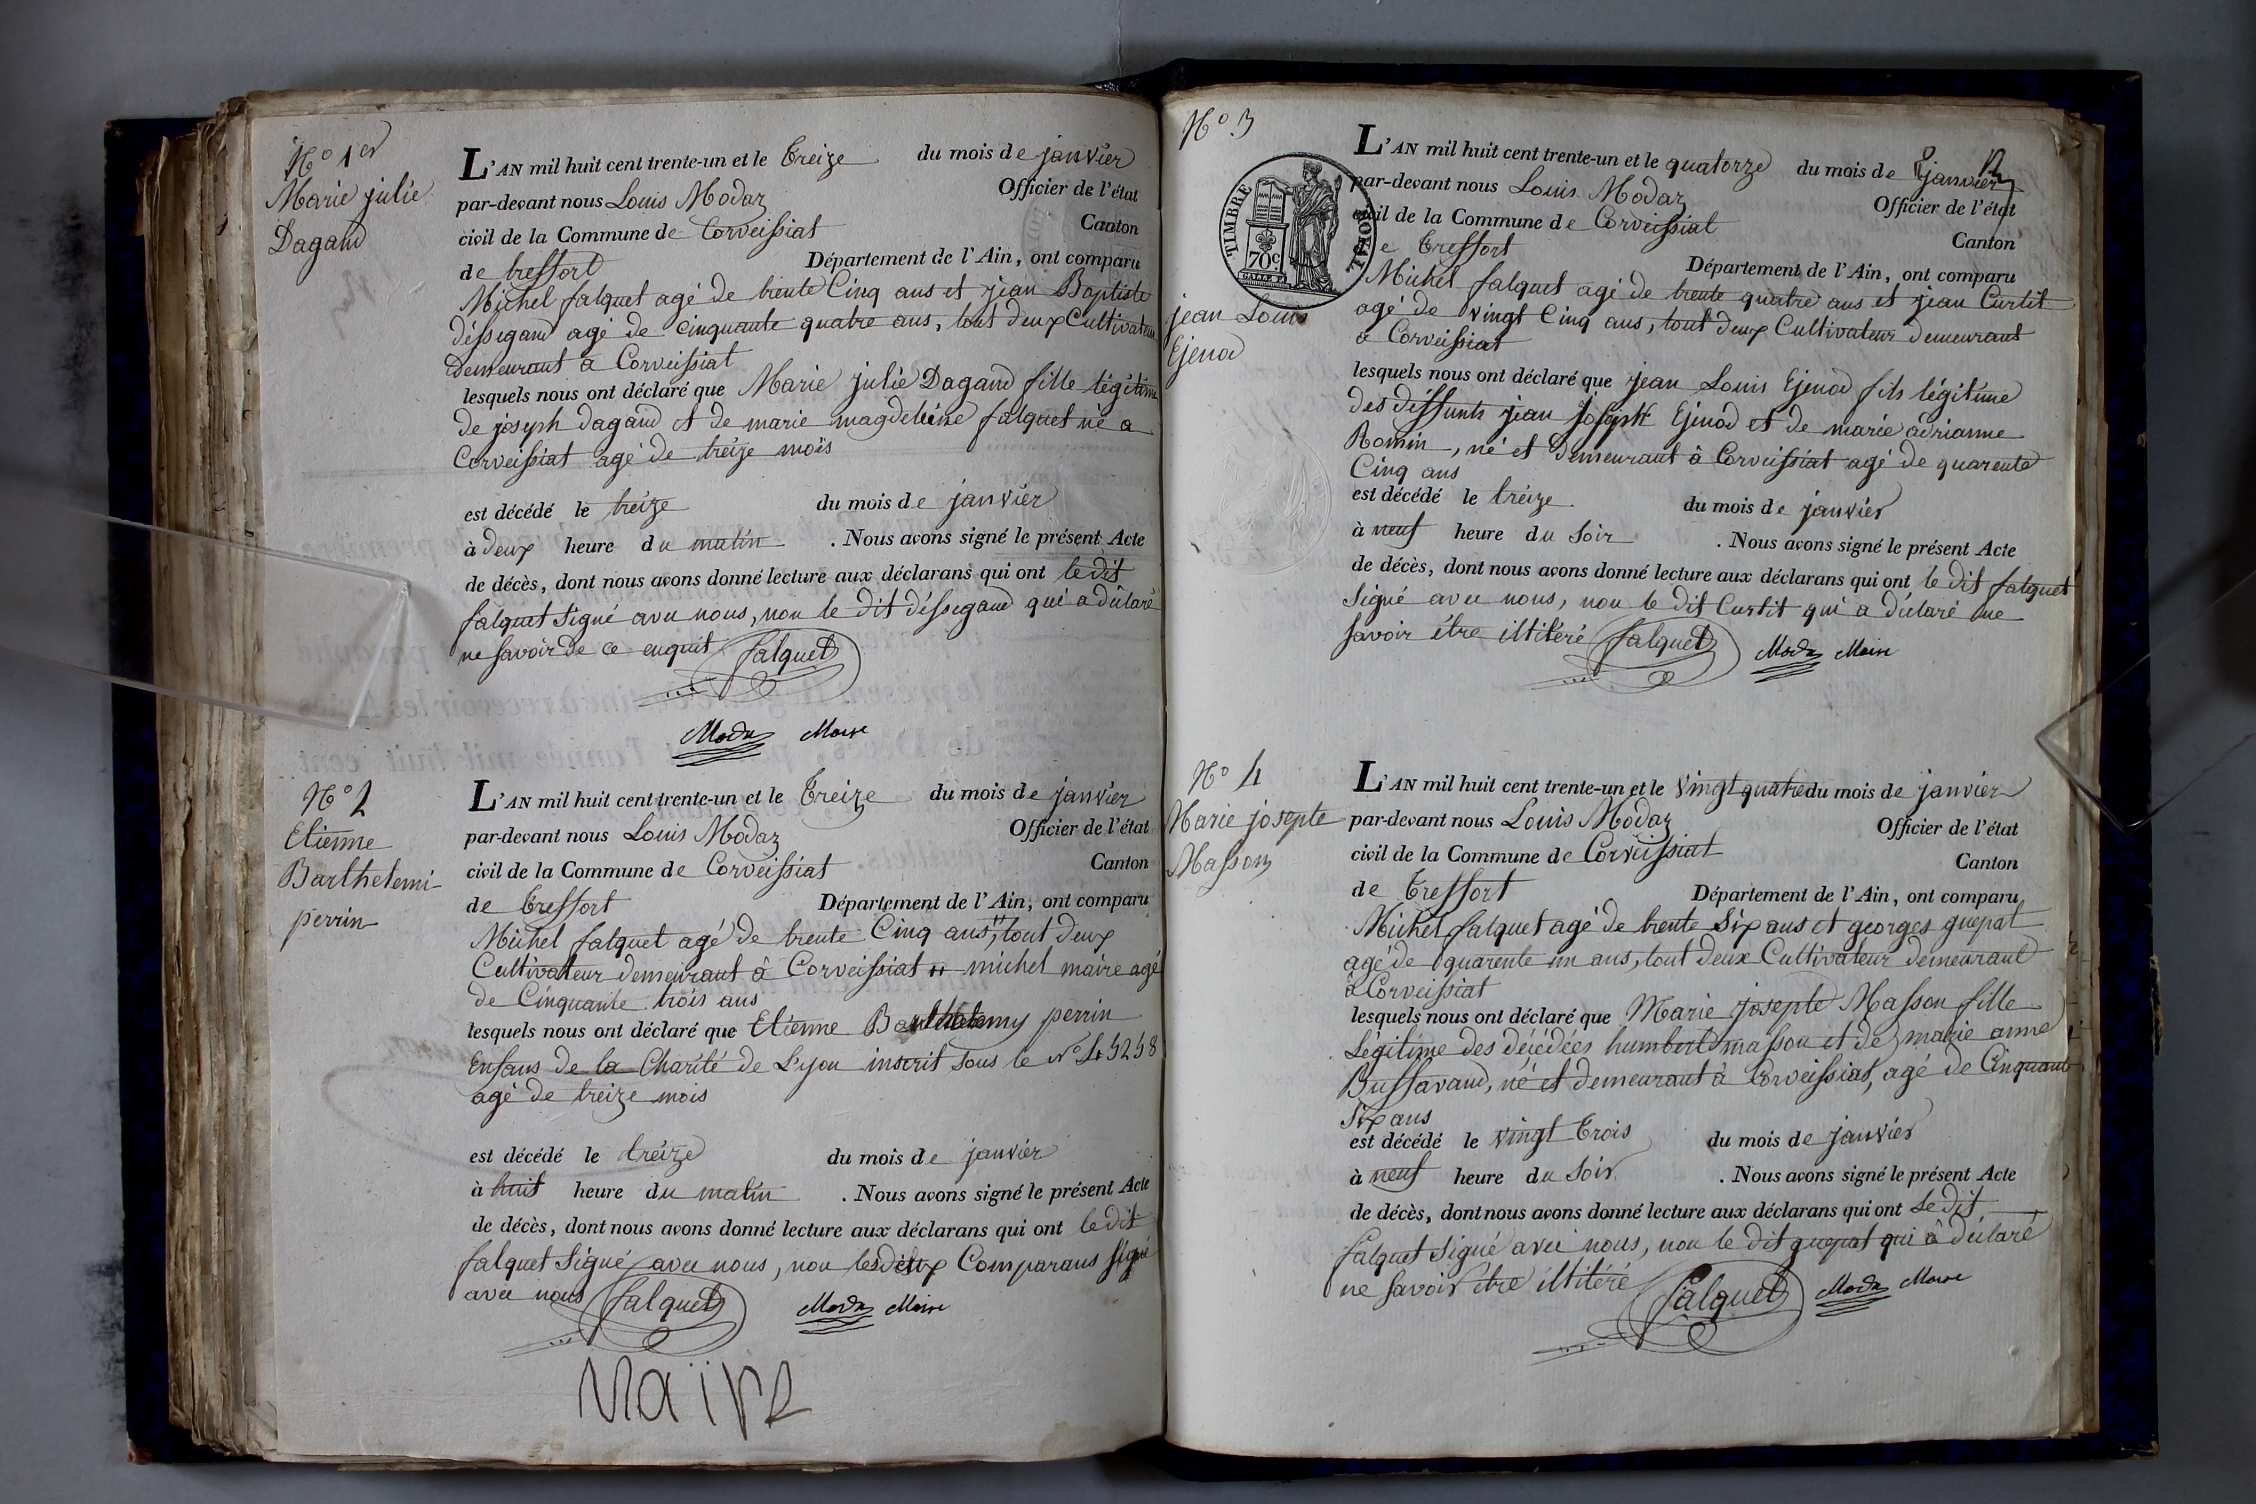 N° 1er
Marie julie
Dagand
L'AN mil huit cent trente-un et le treize du mois de janvier
par-devant nous Louis Modaz Officier de l'état
civil de la Commune de Corveissiat Canton
de treffort Département de l'Ain, ont comparu
Michel falquet agé de trente Cinq ans et jean Baptiste
déssegand agé de cinquante quatre ans, tout deux Cultivateur
demeurant a Corveissiat
lesquels nous ont déclaré que Marie julie Dagand fille légitime
de joseph dagand et de marie magdeleine falquet né a
Corveissiat agé de treize mois
est décédé le treize du mois de janvier
à deux heure du matin . Nous avons signé le présent Acte
de décès, dont nous avons donné lecture aux déclarans qui ont le dit
falquet signé avec nous, non le dit déssegand qui a déclaré
ne savoir de ce enquit falquet
Modaz Maire
N° 2
Etienne
Barthelemi
perrin
L'AN mil huit cent trente-un et le treize du mois de janvier
par-devant nous Louis Modaz Officier de l'état
civil de la Commune de Corveissiat Canton
de treffort Département de l'Ain, ont comparu
Michel falquet agé de trente Cinq ans, tout deux
Cultivateur demeurant à Corveissiat michel maire agé
de Cinquante trois ans
lesquels nous ont déclaré que Etienne Barthelemy perrin
Enfans de la Charité de Lyon inscrit sous le N°
agé de treize mois
est décédé le treize du mois de janvier
à huit heure du matin . Nous avons signé le présent Acte
de décès, dont nous avons donné lecture aux déclarans qui ont le dit
falquet signé avec nous, non les deux Comparans signé
avec nous falquet Modaz Maire
Maire
N° 3
TIMBRE ROYAL
70c
jean Louis
Ejenod
L'AN mil huit cent trente-un et le quatorze du mois de janvier
par-devant nous Louis Modaz Officier de l'état
civil de la Commune de Corveissiat Canton
de treffort Département de l'Ain, ont comparu
Michel falquet agé de trente quatre ans et jean Curtit
agé de vingt Cinq ans, tout deux Cultivateur demeurant
a Corveissiat
lesquels nous ont déclaré que jean Louis Ejenod fils légitime
des déffunts jean joseph Ejenod et de marie adrianne
Romin, né et demeurant à Corveissiat agé de quarente
Cinq ans
est décédé le treize du mois de janvier
à neuf heure du soir . Nous avons signé le présent Acte
de décès, dont nous avons donné lecture aux déclarans qui ont le dit falquet
signé avec nous, non le dit Curtit qui a déclaré ne
savoir être illitéré falquet Modaz Maire
N° 4
Marie josepte
Masson
L'AN mil huit cent trente-un et le vingt quatre du mois de janvier
par-devant nous Louis Modaz Officier de l'état
civil de la Commune de Corveissiat Canton
de treffort Département de l'Ain, ont comparu
Michel falquet agé de trente six ans et georges guepat
agé de quarente un ans, tout deux Cultivateur demeurant
à Corveissiat
lesquels nous ont déclaré que Marie josepte Masson fille
Légitime des décédées humbert masson et de marie anne
Bussavand, né et demeurant à Corveissiat, agé de Cinquante
six ans
est décédé le vingt trois du mois de janvier
à neuf heure du soir . Nous avons signé le présent Acte
de décès, dont nous avons donné lecture aux déclarans qui ont le dit
falquet signé avec nous, non le dit guepat qui à déclaré
ne savoir être illitéré falquet Modaz Maire